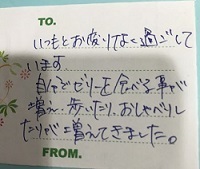 TO.
いつもとお変りなく過ごして
います
自分でゼリーを食べる事が
増え歩いたり、おしゃべりし
たりが増えてきました。
FROM.